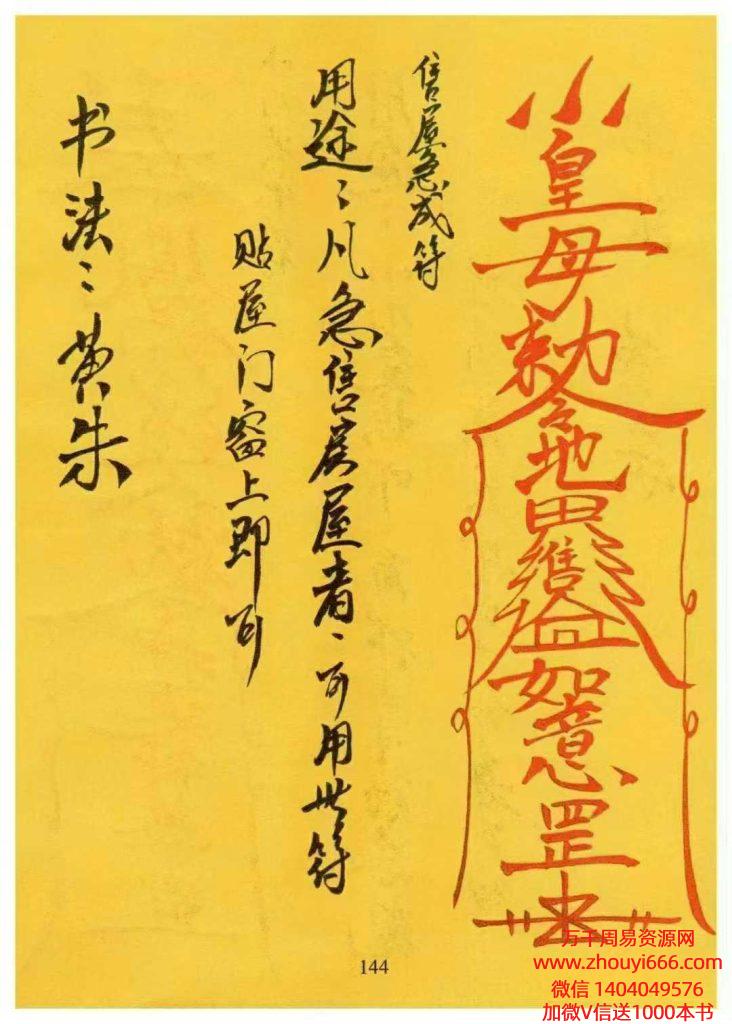 皇母敕令地界售益如意罡
售屋急成符
用途：凡急售房屋者、可用此符
贴屋门窗上即可
书法：黄朱
144
万千周易资源网
www.zhouyi666.com
微信 1404049576
加微V信送1000本书